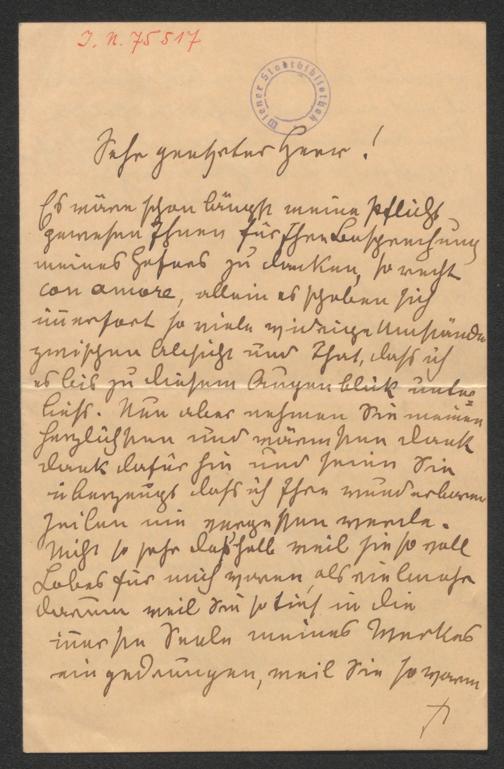 I. N. 75517
Wiener Stadtbibliothek
Sehr geehrter Herr!
Es wäre schon längst meine Pflicht
gewesen Ihnen für Ihre Besprechung
meines Heftes zu danken, so recht
con amore, allein es schoben sich
immerfort so viele widrige Umstände
zwischen Absicht und That, dass ich
es bis zu diesem Augenblick unter
liess. Nun aber nehmen Sie meinen
herzlichsten und wärmsten Dank
dank dafür hin und seien Sie
überzeugt dass ich Ihre wunderbaren
Zeilen nie vergessen werde.
Nicht so sehr deshalb weil sie so voll
Lobes für mich waren, als vielmehr
darum weil Sie so tief in die
innerste Seele meines Werkes
eingedrungen, weil Sie so warm